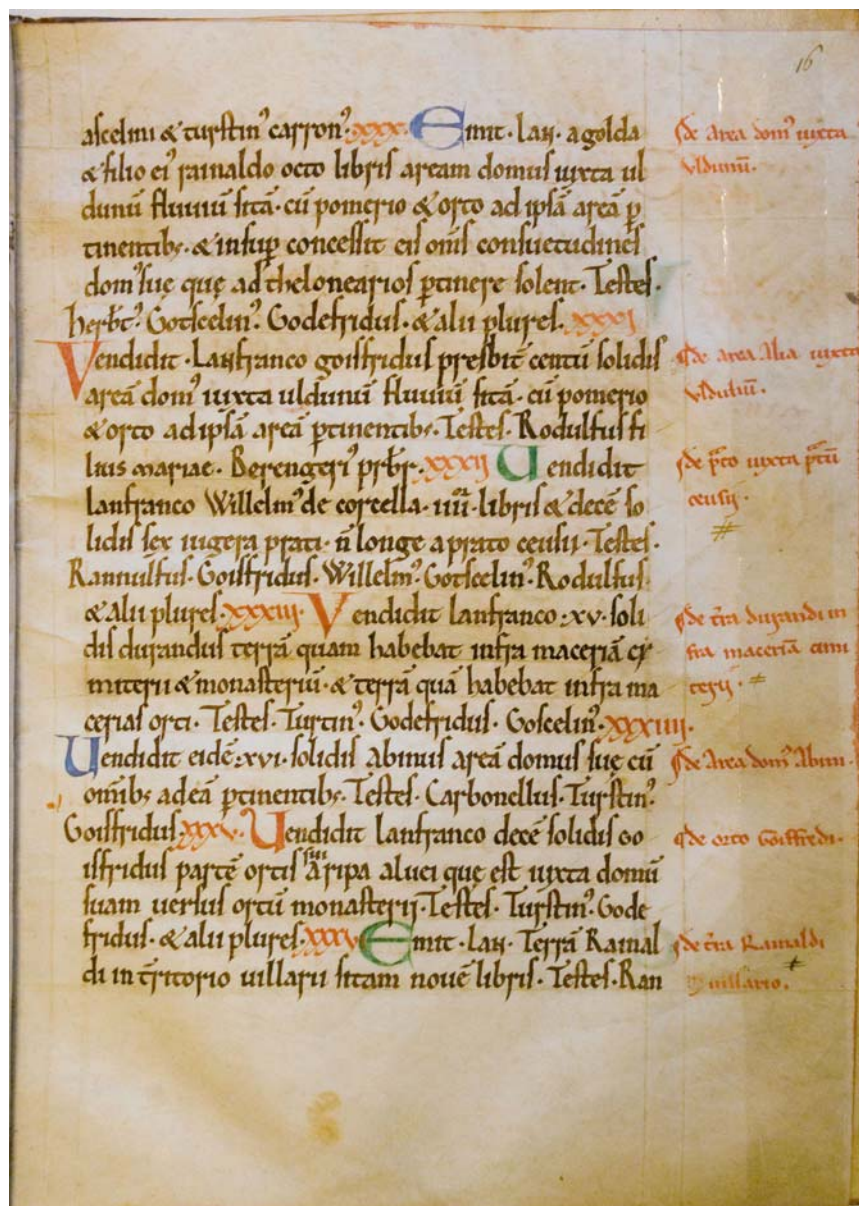 16
ascelini & turstin᾿ carron᾿· xxx· Emit · Lan· a golda
& filio ei᾿ rainaldo octo libris aream domus iuxta ul
dunū fluuiū sitā· cū pomerio & orto ad ipsā areā p̄
tinentib᾿· & insup̄ concessit eis om̄s consuetudines
dom᾿ suę quę ad thelonearios p̄tinere solent· Testes·
herb̄t᾿· Gotscelin᾿· Godefridus· & alii plures· xxxi
Vendidit · Lanfranco goisfridus presbit̄ centū solidis
areā dom᾿ iuxta uldunū fluuiū sitā· cū pomerio
& orto ad ipsā areā p̄tinentib᾿· Testes· Rodulfus fi
lius mariae· Berengeri᾿ prb̄r· xxxii Uendidit
lanfranco Willelm᾿ de corcella· iiii· libris & decē so
lidis sex iugera prati· n̄ longe a prato ceusii· Testes·
Rannulfus· Goisfridus· Willelm᾿ Gotscelin᾿· Rodulfus·
& alii plures· xxxiii· Vendidit lanfranco· xv· soli
dis durandus terrā quam habebat infra maceriā cy
miterii & monasteriū· & terrā quā habebat infra ma
cerias orti· Testes· Turtin᾿· Godefridus· Goscelin᾿· xxxiiii·
Uendidit eidē· xvi· solidis abinus areā domus suę cū
omīb᾿ ad eā p̄tinentib᾿· Testes· Carbonellus· Turstin᾿
Goisfridus· xxxv· Uendidit lanfranco decē solidis Go
isfridus partē ortis sui A ripa aluei quę est iuxta domū
suam uersus ortū monasterij· Testes· Turstin᾿· Gode
fridus· & alii plures· xxxv Emit · Lan· Terrā Rainal
di in t̄ritorio uillarii sitam nouē libris· Testes· Ran
de area dom᾿ iuxta
Vldunū·
de area Alia iuxta
Vldunū·
de p̄to iuxta p̄tū
ceusij·
de t̄ra durandi in
fra maceriā cimi
terij·
de Area dom᾿ Abini·
de orto Goiffredi·
de t̄ra Rainaldi
uillario·